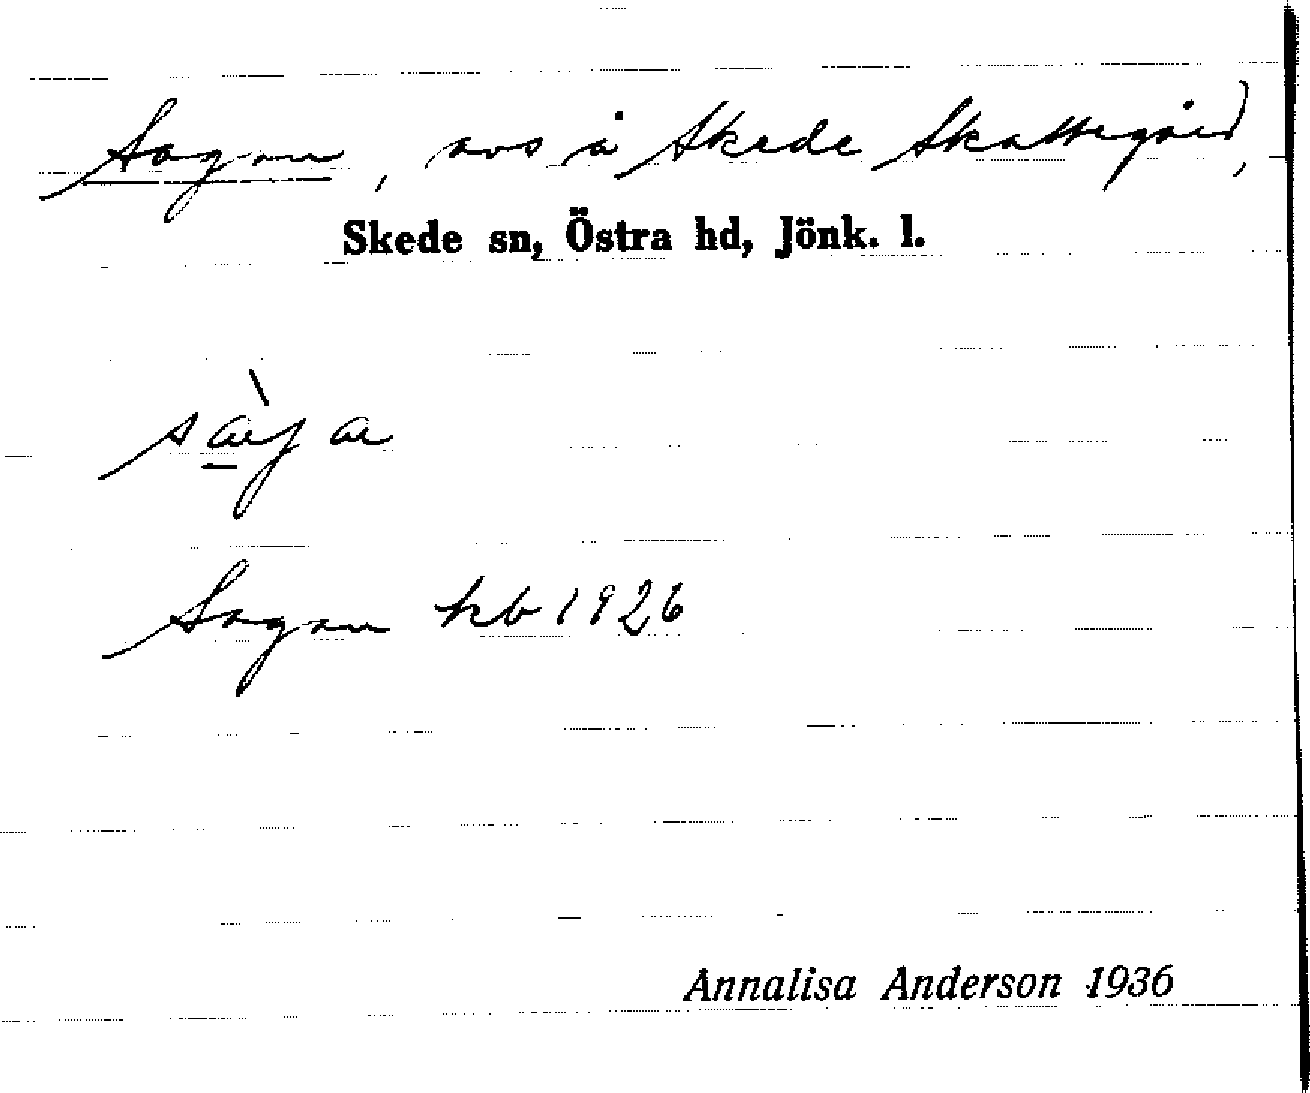 Sagan, avs å Skede Skattegård,
Skede sn, Östra hd, Jönk. l.
sàga
Sagan kb 1926
Annalisa Anderson 1936